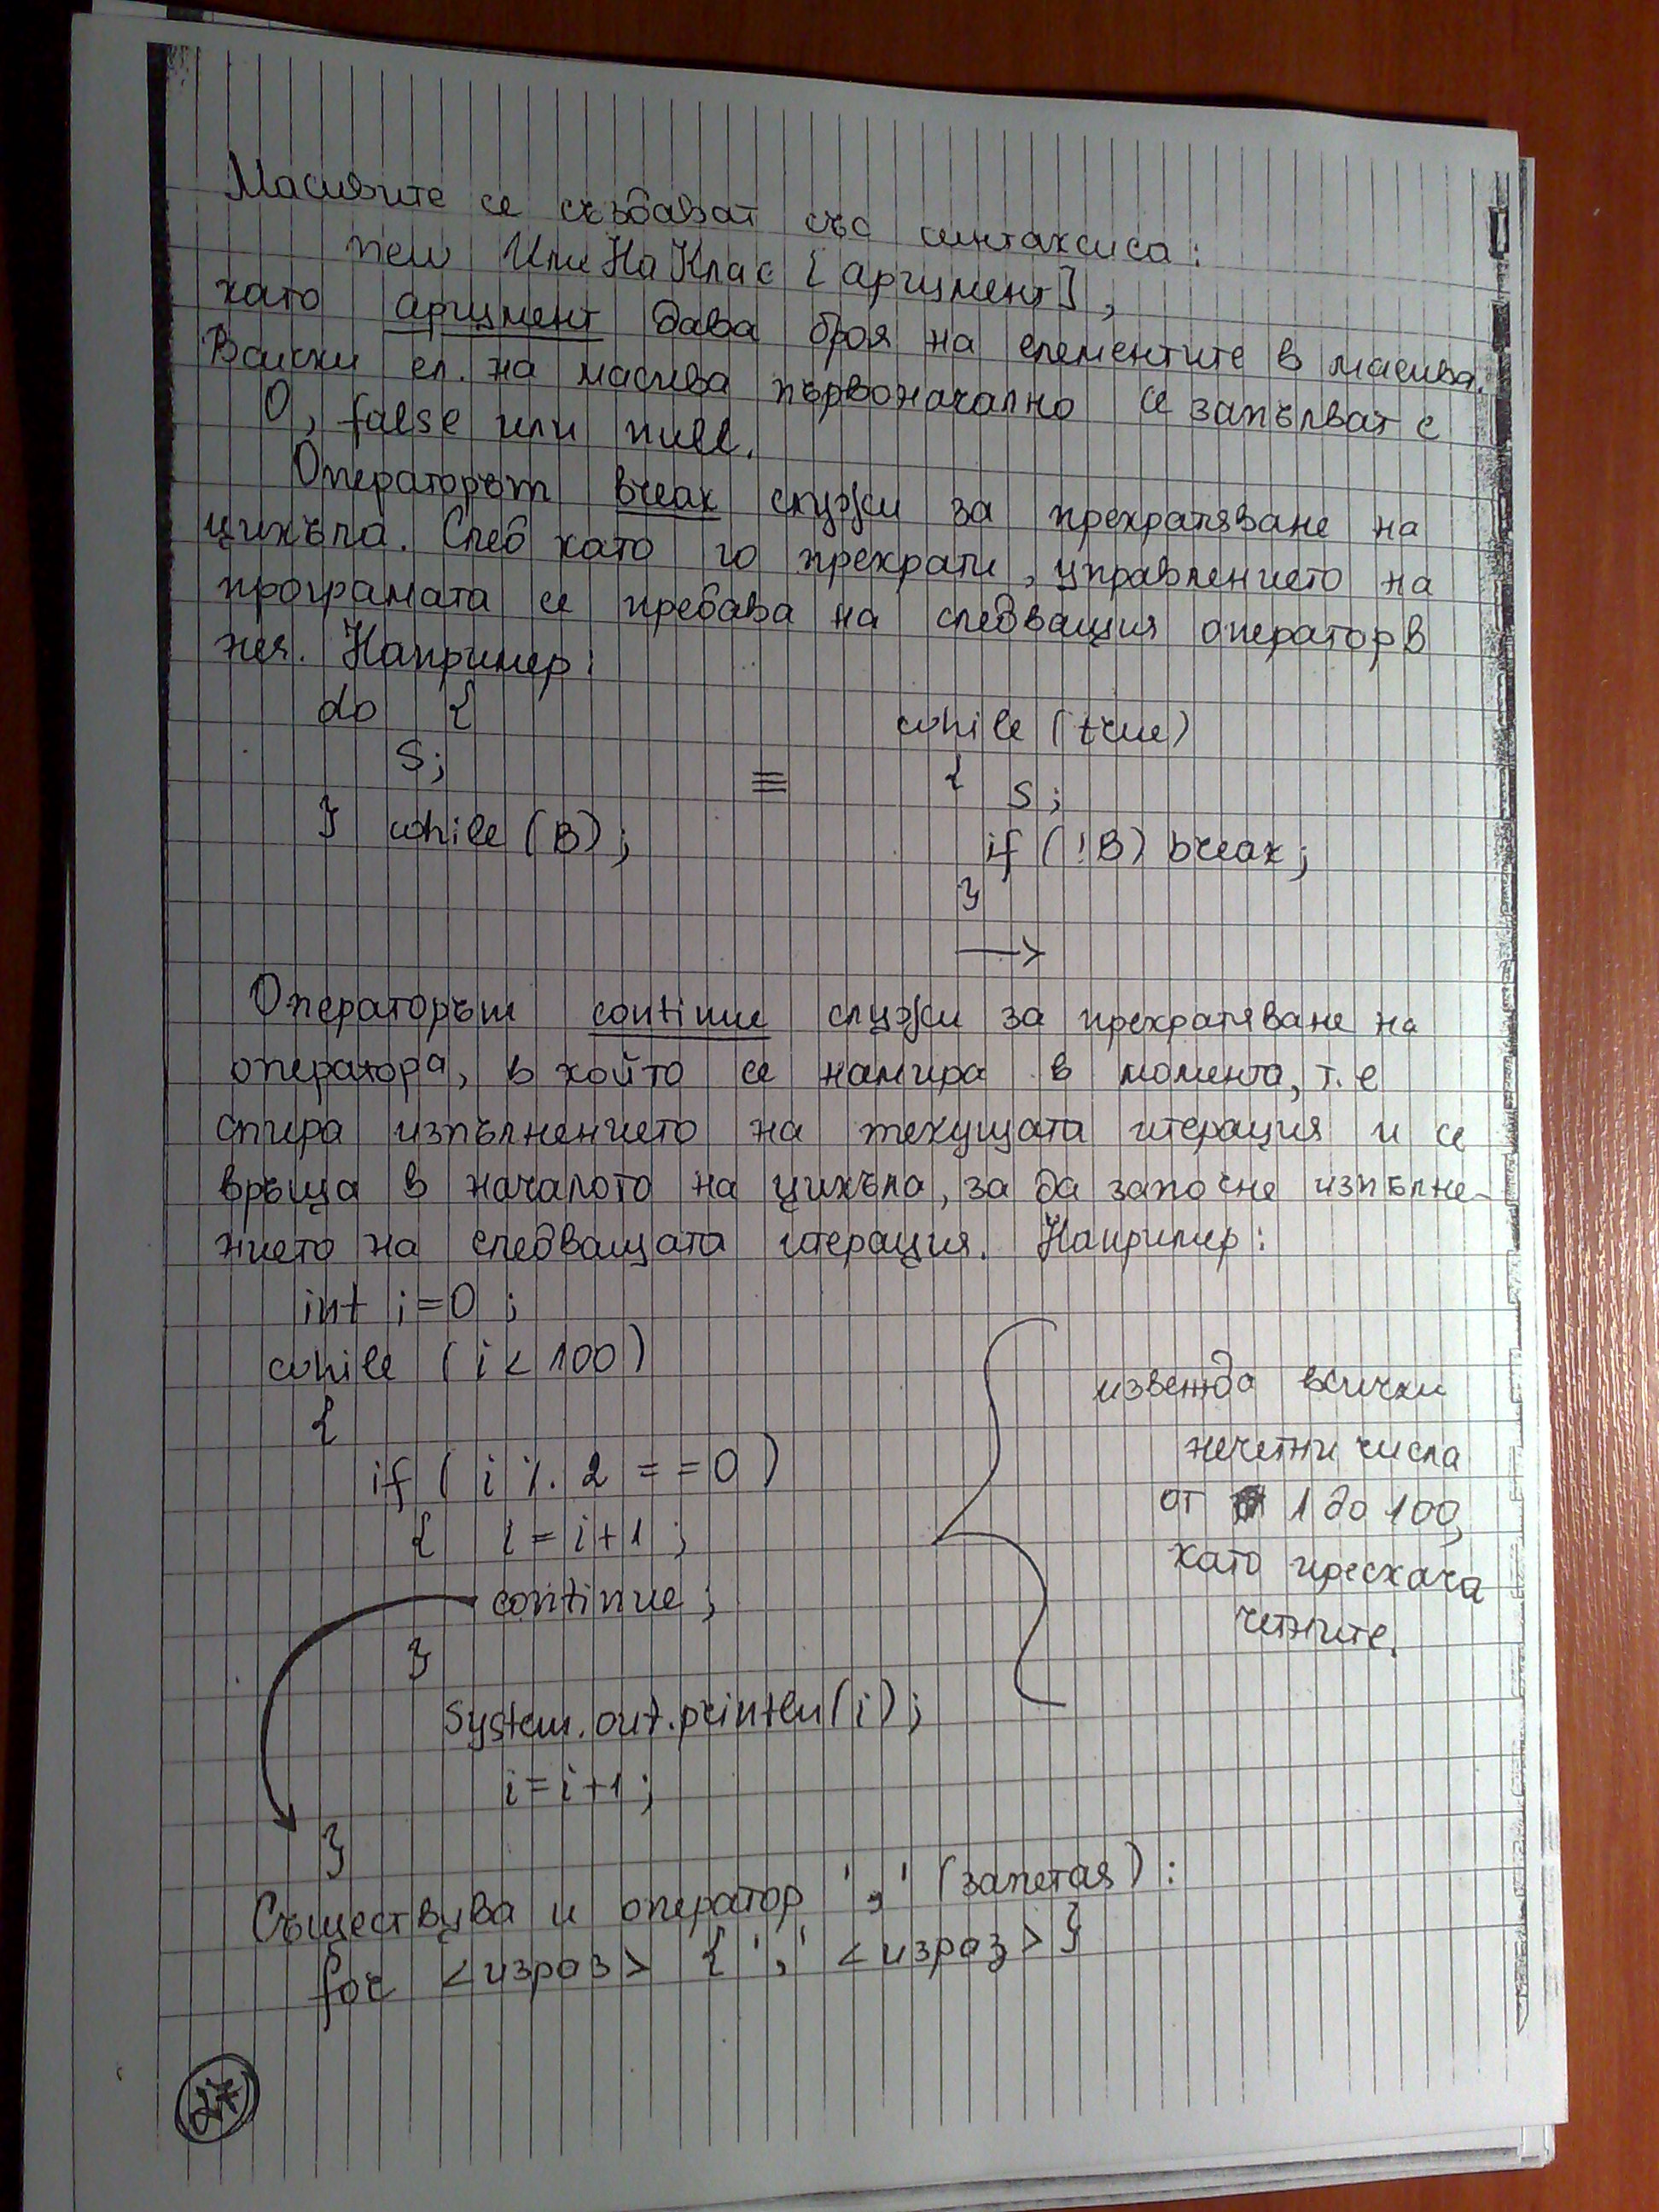 Масивите се създават със синтаксиса:
new ИмеНаКлас [аргумент],
като аргумент дава броя на елементите в масива.
Всички ел. на масива първоначално се запълват с
0, false или null.
Операторът break служи за прекратяване на
цикъла. След като го прекрати, управлението на
програмата се предава на следващия оператор в
нея. Например:
do {
S;
} while (B);
≡
while (true)
{
S;
if (!B) break;
}
→
Операторът continue служи за прекратяване на
оператора, в който се намира в момента, т.е
спира изпълнението на текущата итерация и се
връща в началото на цикъла, за да започне изпълне-
нието на следващата итерация. Например:
int i=0;
while (i < 100)
{
if (i % 2 == 0)
{ i = i+1;
continue;
}
System.out.println(i);
i = i+1;
}
извежда всички
нечетни числа
от 1 до 100,
като прескача
четните.
Съществува и оператор ',' (запетая):
for <израз> { ',' <израз> }
27